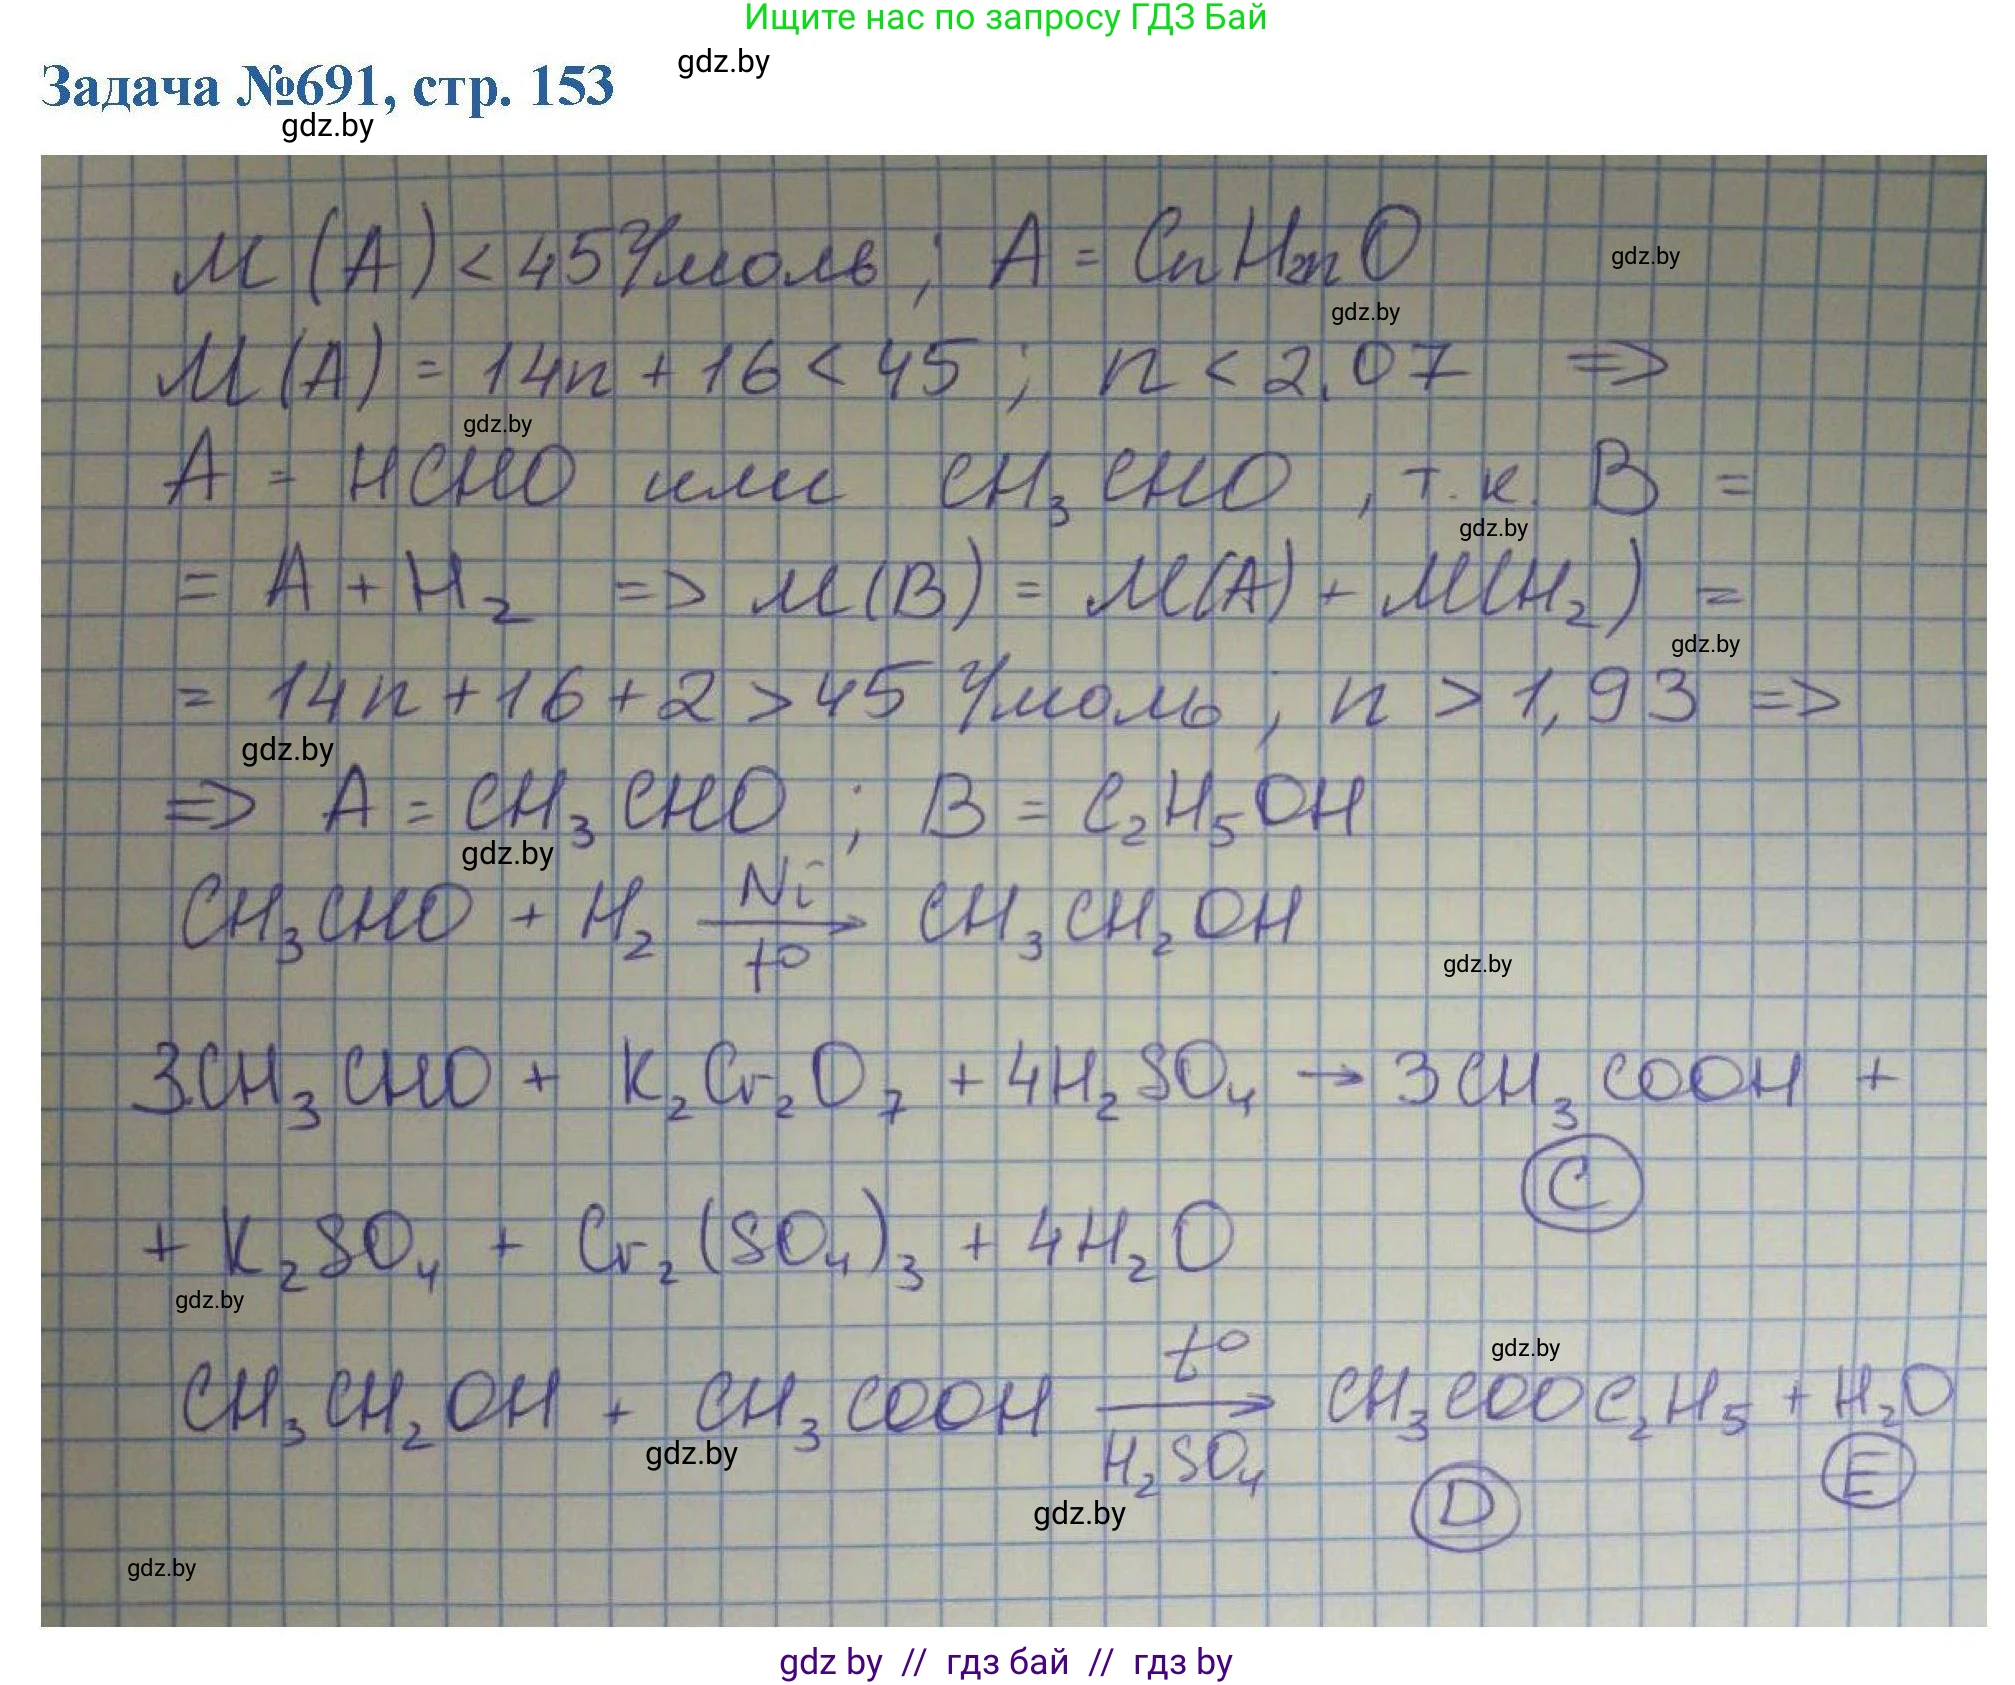 Ищите нас по запросу ГДЗ Бай
gdz.by
Задача №691, стр. 153
gdz.by
M(A) < 45 г/моль ; A = CnH2nO
gdz.by
gdz.by
M(A) = 14n + 16 < 45 ; n < 2,07 =>
gdz.by
A = HCHO или CH3CHO , т.к. B =
gdz.by
= A + H2 => M(B) = M(A) + M(H2) =
gdz.by
= 14n + 16 + 2 > 45 г/моль ; n > 1,93 =>
gdz.by
=> A = CH3CHO ; B = C2H5OH
gdz.by
CH3CHO + H2 Ni t° → CH3CH2OH
gdz.by
3CH3CHO + K2Cr2O7 + 4H2SO4 → 3CH3COOH +
C
+ K2SO4 + Cr2(SO4)3 + 4H2O
gdz.by
gdz.by
CH3CH2OH + CH3COOH t° H2SO4 → CH3COOC2H5 + H2O
gdz.by
D E
gdz.by
gdz.by
gdz by // гдз бай // гдз by